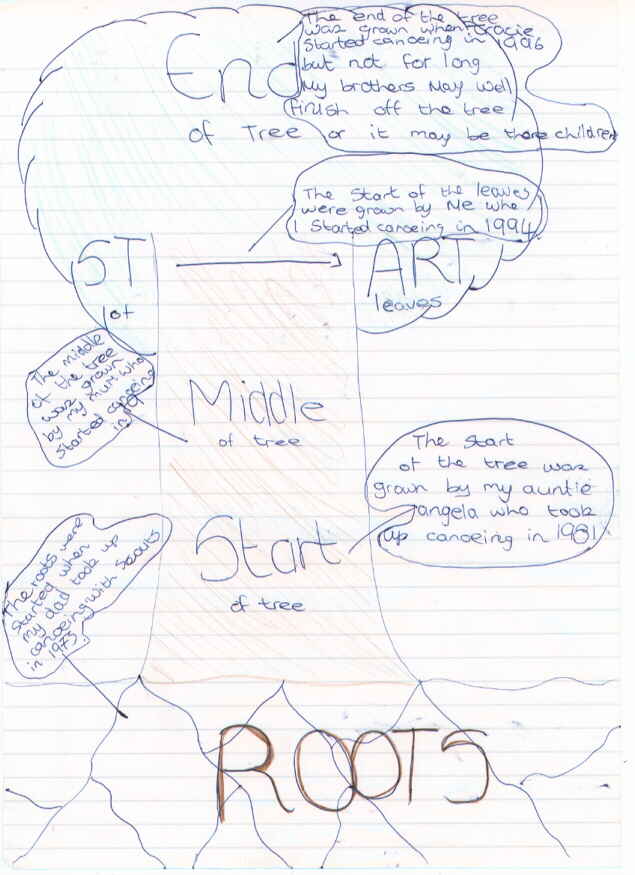 The end of the tree
was grown when tracie
started canoeing in 1996
but not for long
My brothers May well
finish off the tree
or it may be there children
End
of Tree
The start of the leaves
were grown by Me who
started canoeing in 1994
ST ART
of leaves
The middle
of the tree
was grown
by my mum who
started canoeing
in
Middle
of tree
The Start
of the tree was
grown by my auntie
angela who took
up canoeing in 1981
Start
of tree
The roots were
started when
my dad took up
canoeing with Scouts
in 1973.
ROOTS